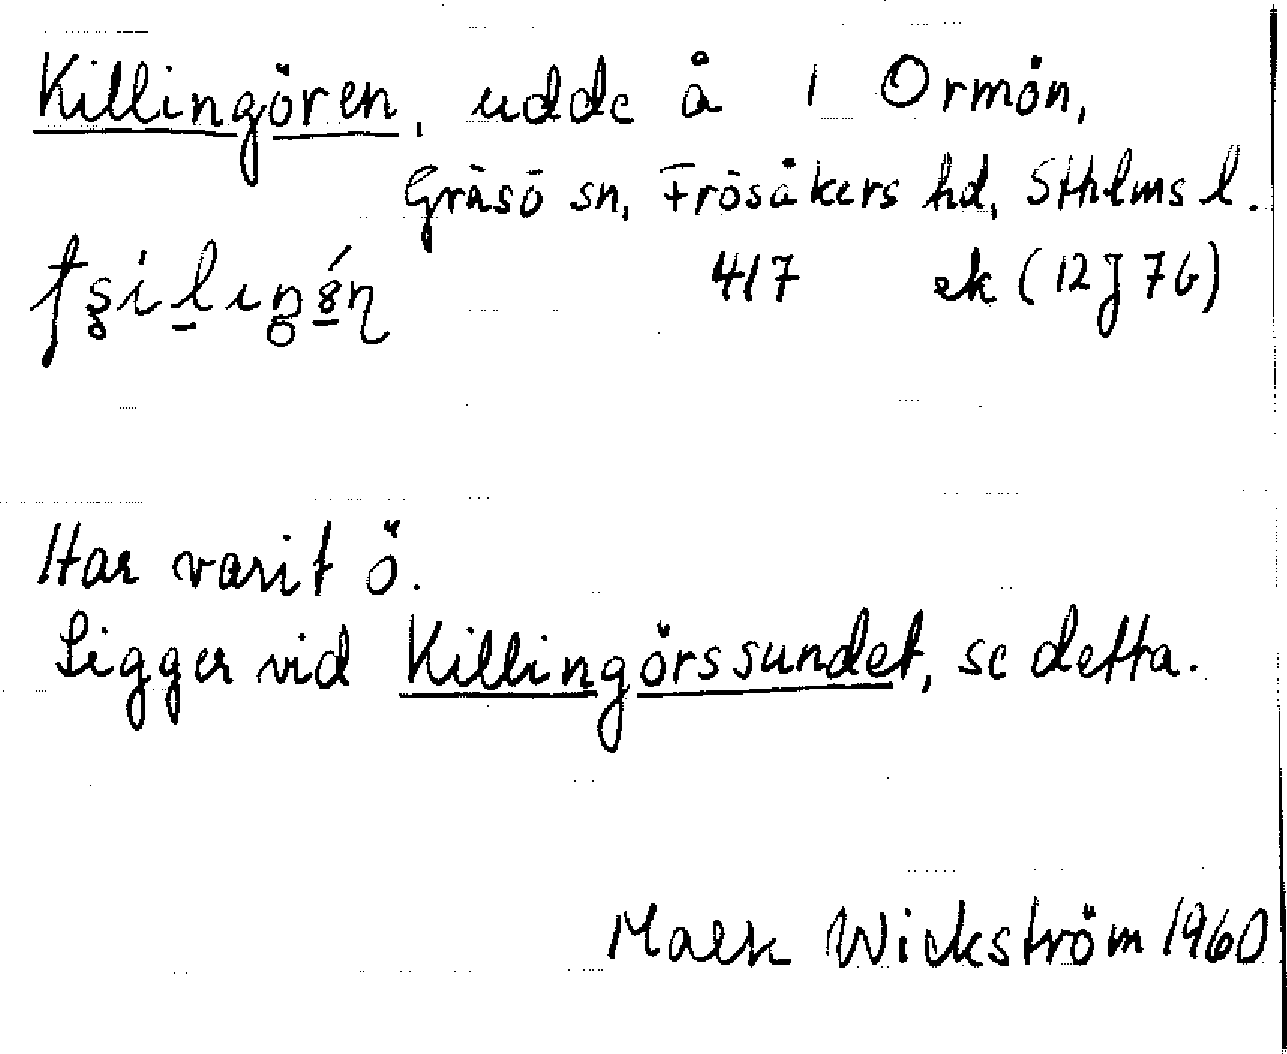 Killingören, udde å 1 Ormön,
Gräsö sn, Frösåkers hd, Sthlms l.
417 ek (12J 7G)
Har varit ö.
Ligger vid Killingörssundet, se detta.
Wickström 1960